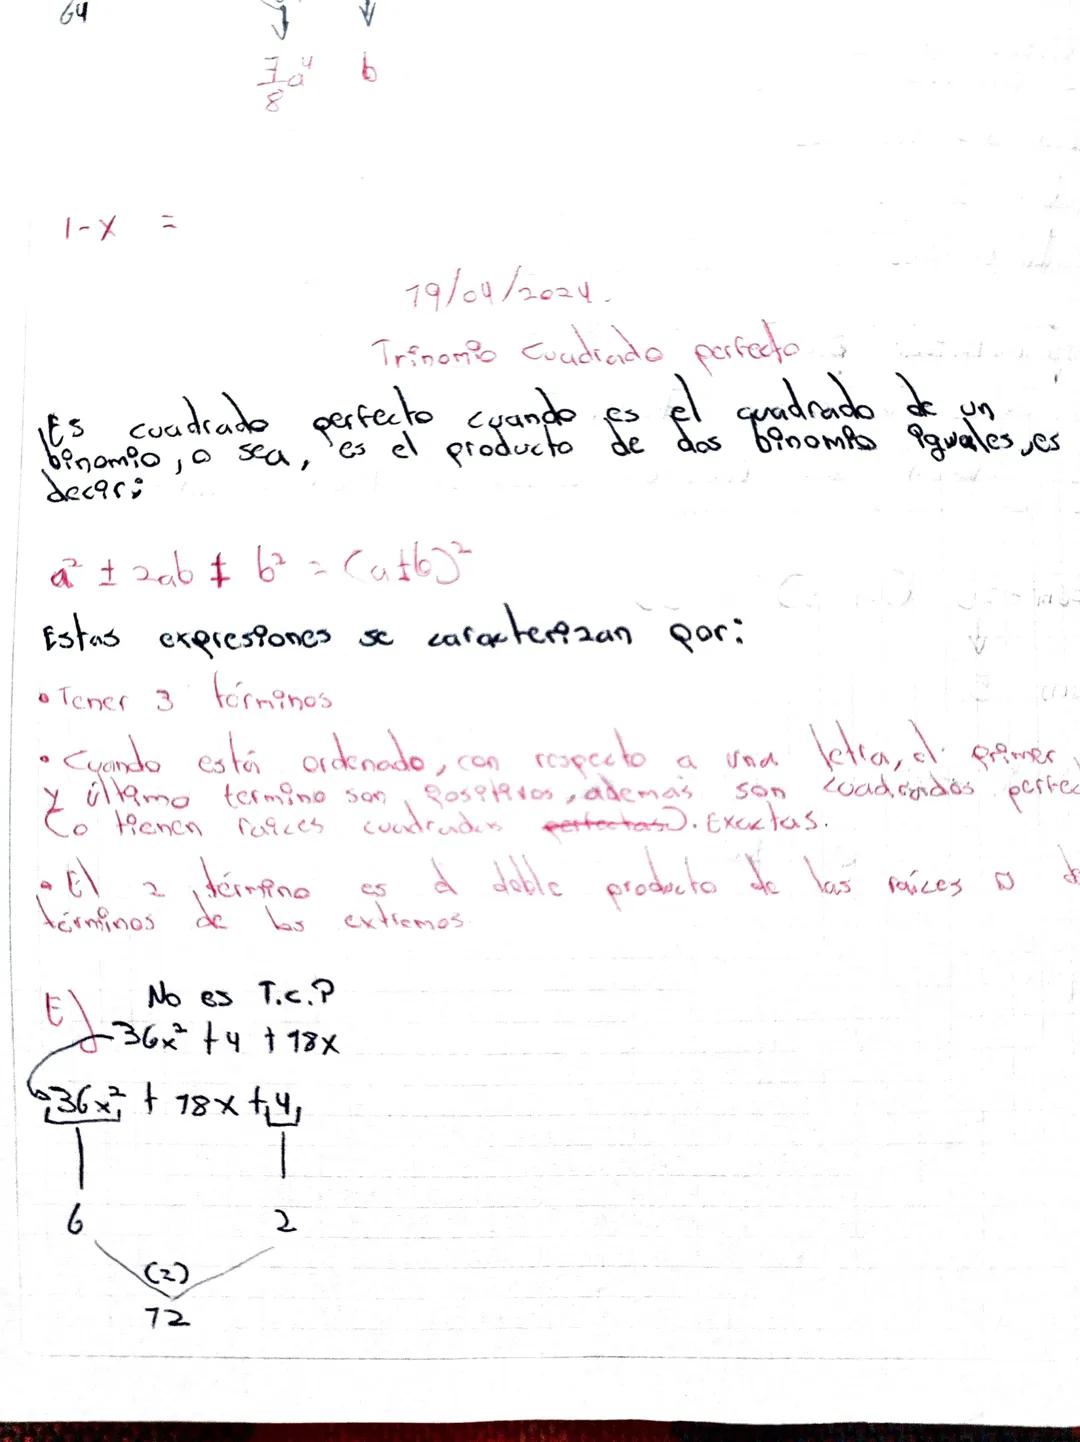 64
7/8 a⁴ b
1-x =
19/04/2024.
Trinomio cuadrado perfecto
Es cuadrado perfecto cuando es el cuadrado de un
binomio, o sea, es el producto de dos binomios iguales, es
decir:
a² ± 2ab ± b² = (a±b)²
Estas expresiones se caracterizan por:
• Tener 3 términos
• Cuando está ordenado, con respecto a una letra, el primer
y último termino son positivos, además son cuadrados perfec
to tienen raíces cuadradas perfectas). Exactas.
• El 2 término es el doble producto de las raíces
términos de los extremos
No es T.C.P
E) 36x² + 4 + 18x
36x² + 18x + 4
6 2
(2)
72